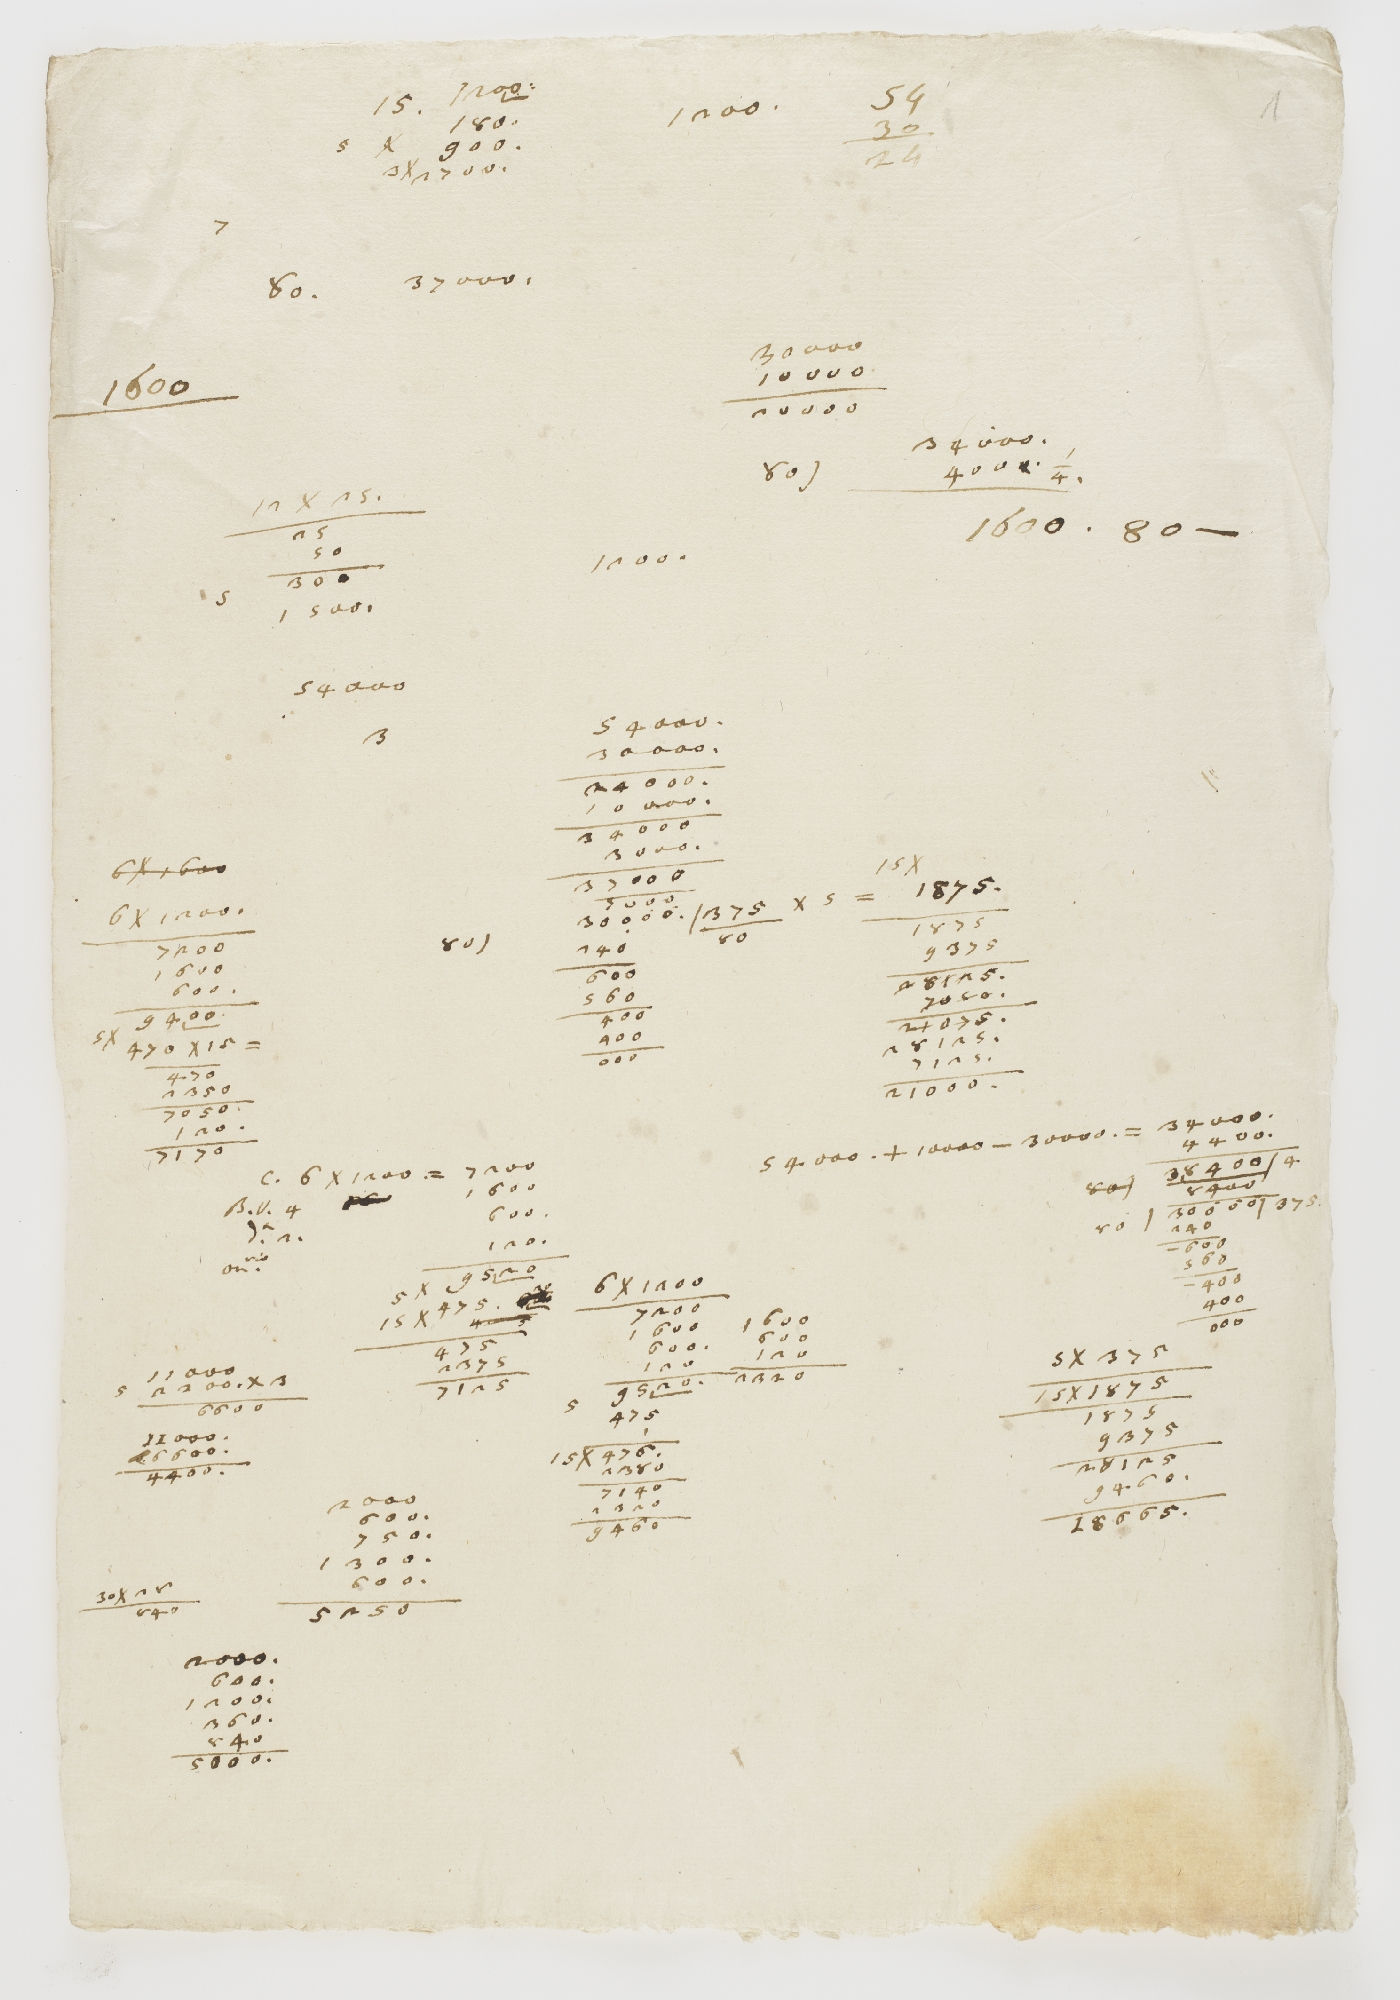 1
15. 1200.
180.
5 X 900.
3X2700.
1200.
54
30
24
7
80. 37000.
1600
30000
10000
20000
34000.
80) 4000. 1/4.
1600. 80—
12 X 25.
25
50
300
5 1500.
1200.
54000
3
54000.
30000.
24000.
10000.
34000
3000.
37000
5000
80) 30000. /375 X 5 = 1875.
80
240
600
560
400
400
000
15X
1875
9375
28125.
7050.
21075.
28125.
7125.
21000.
6X1600
6X1200.
7200
1600
600.
9400.
5X
470 X15 =
470
2350
7050.
120.
7170
54000.+10000—30000.= 34000.
4400.
80) 38400/4
8400
80) 30000/375.
240
—600
560
—400
400
000
C. 6X1200.= 7200
B.U. 4 1600
600.
120.
5X 9520
15X475.
475
2375
7125
6X1200
7200
1600
600.
120
9520.
5 475
1
15X476.
2380
7140
2320
9460
1600
600
120
2320
11000
5 2200.X3
6600
11000.
6600.
4400.
5X375
15X1875
1875
9375
28125
9460.
18665.
2000
600.
750.
1300.
600.
5250
30X28
840
2000.
600.
1200.
360.
840
5000.